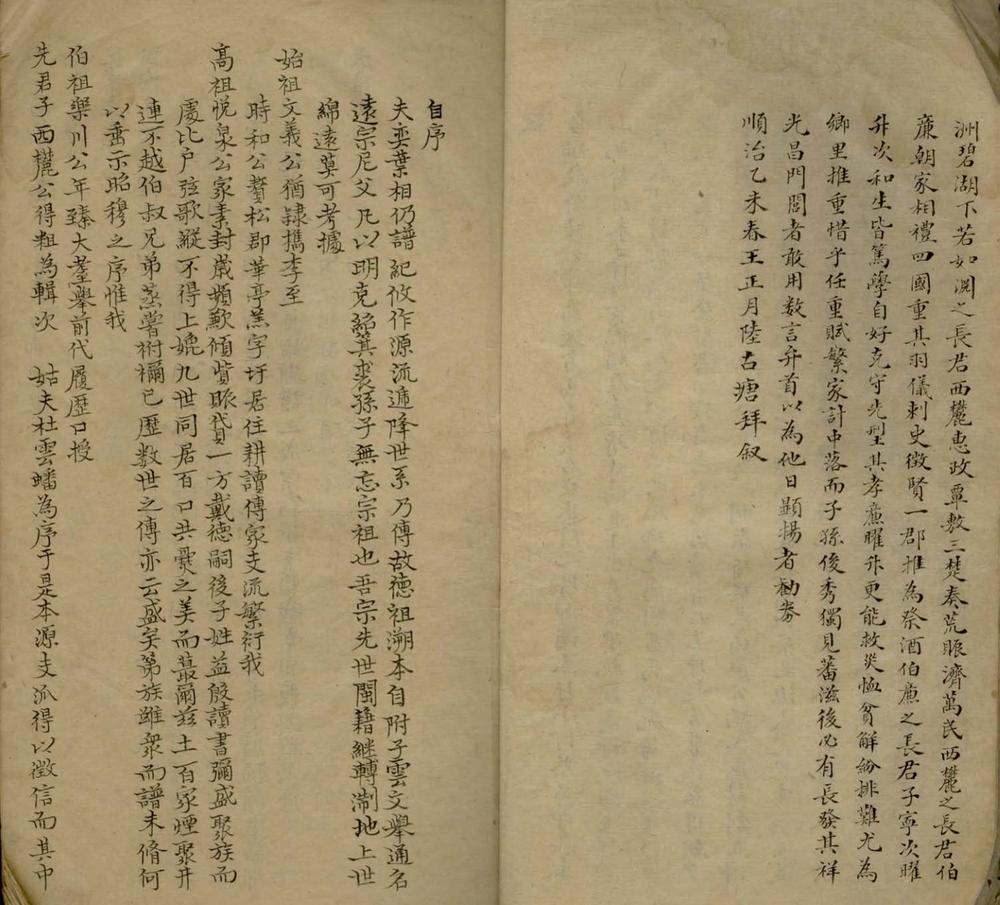 洲碧湖下若如淵之長君西麓惠政覃敷三楚奏荒賑濟萬民西麓之長君伯
廉朝家相禮四國重其羽儀刺史徵賢一郡推為祭酒伯廉之長君子寧次曜
升次和生皆篤學自好克守先型其孝廉曜升更能救災恤貧解紛排難尤為
鄉里推重惜乎任重賦繁家計中落而子孫俊秀獨見蕃滋後必有長發其祥
光昌門閭者敢用数言弁首以為他日顯揚者劵
順治乙未春王正月陸古塘拜叙
自序
夫奕葉相仍譜紀攸作源流遞降世系乃傳故德祖溯本自附子雲文舉通名
遠宗尼父凡以明克紹箕裘孫子無忘宗祖也吾宗先世閩籍継轉淛地上世
綿遠莫可考據
始祖文義公猶隸檇李至
時和公贅松郡華亭羔字圩居住耕讀傳家支流繁衍我
高祖悦泉公家素封歲頻歉傾貲賑貸一方戴德嗣後子姓益殷讀書彌盛聚族而
處比户弦歌縱不得上媲九世同居百口共爨之美而蕞爾兹土百家煙聚井
連不越伯叔兄弟蒸嘗祔禰已歷數世之傳亦云盛矣第族雖衆而譜未脩何
以垂示昭穆之序惟我
伯祖樂川公年臻大耋舉前代履歷口授
先君子西麓公得粗為輯次 姑夫杜雲蟠為序于是本源支派得以徵信而其中